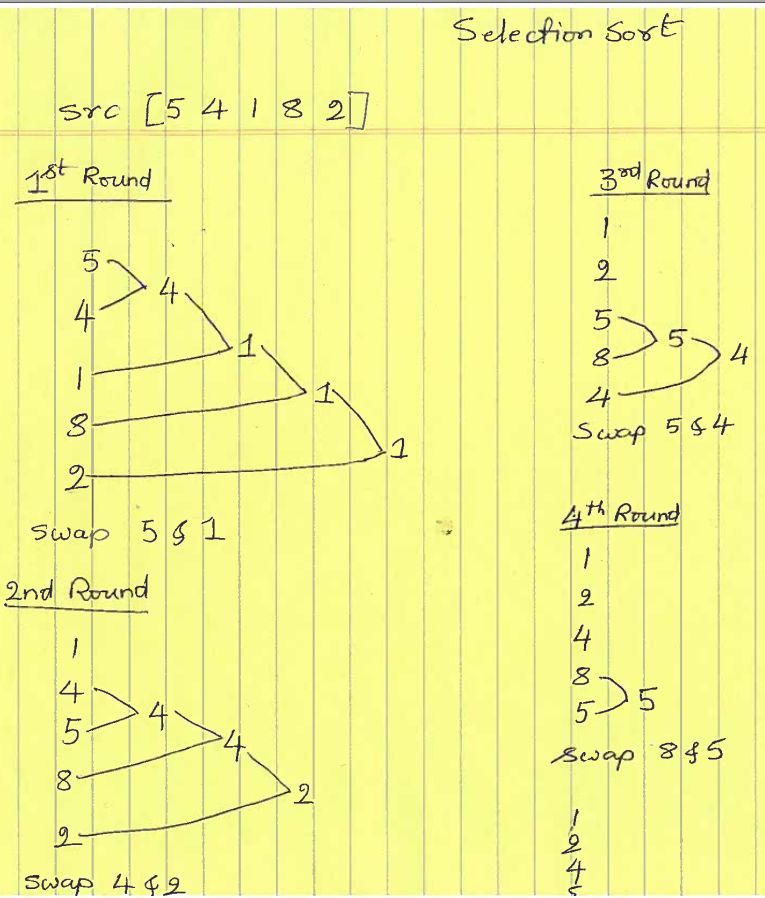 Selection Sort
src [5 4 1 8 2]
1st Round
5
4
4
1
1
8
1
2
1
swap 5 & 1
2nd Round
1
4
5
4
8
4
2
2
swap 4 & 2
3rd Round
1
2
5
8
5
4
4
Swap 5 & 4
4th Round
1
2
4
8
5
5
swap 8 & 5
1
2
4
5